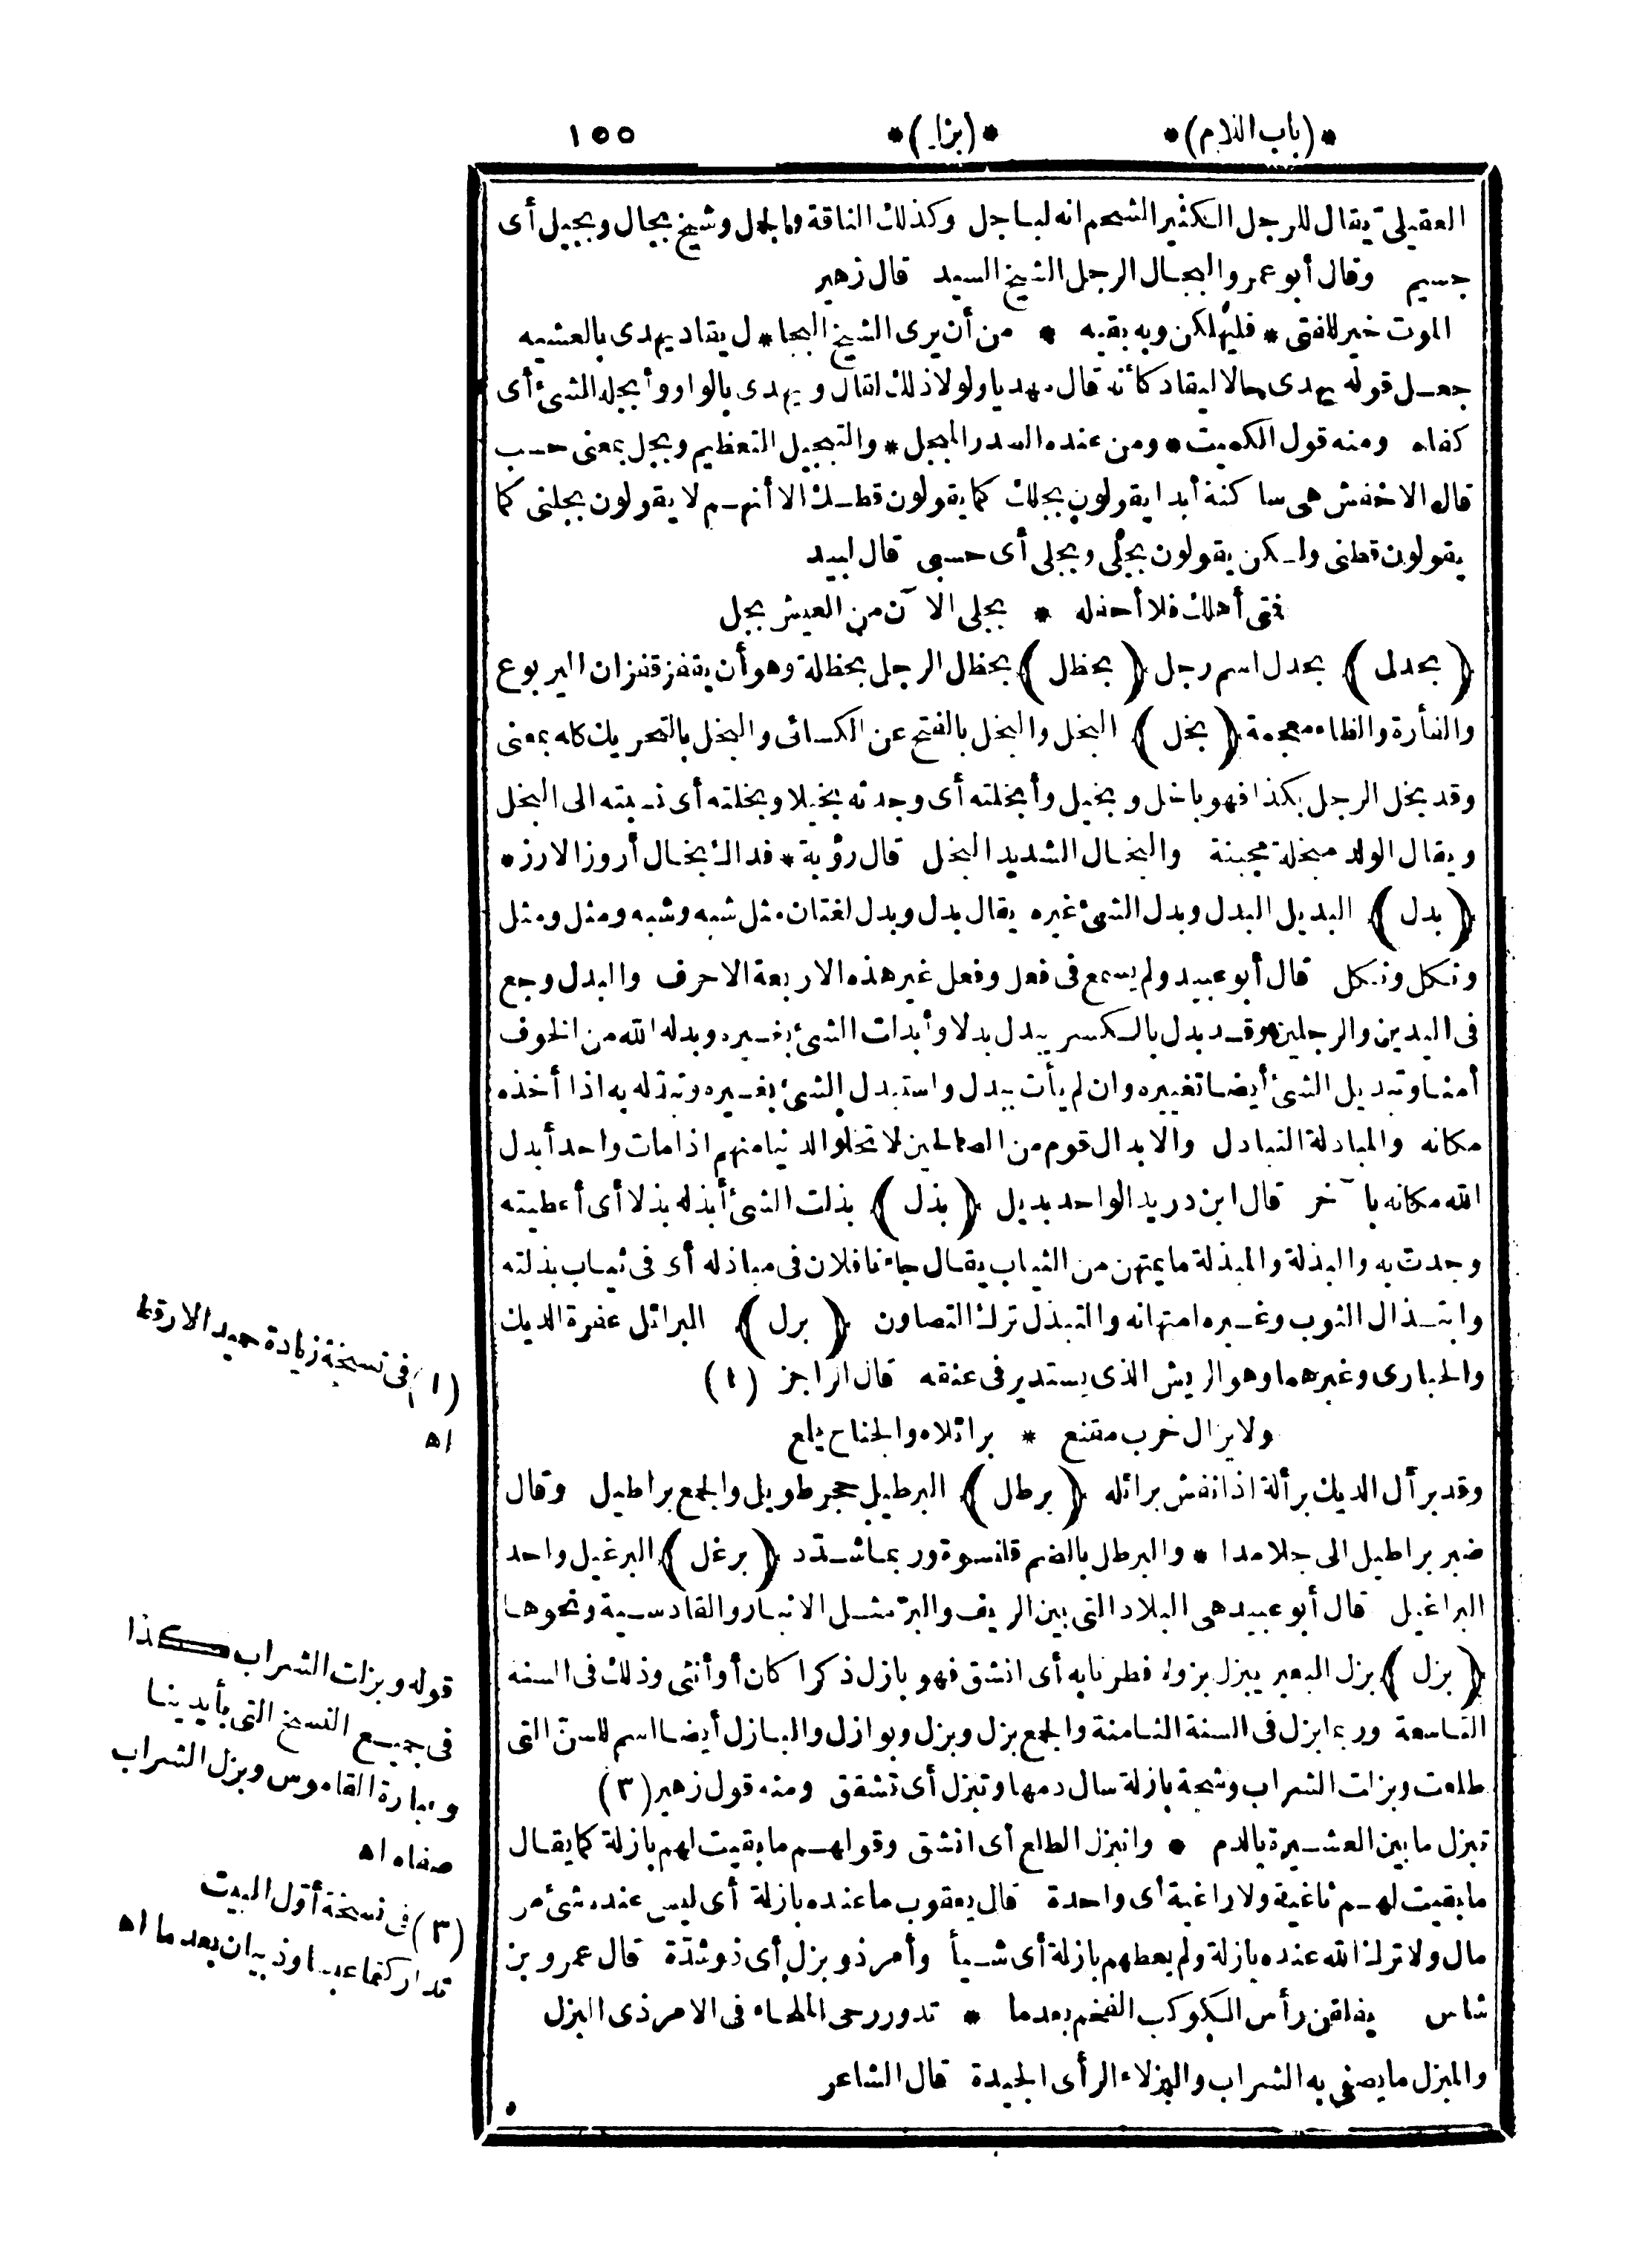 *(باب اللام)* *(بزل)* ١٥٥
العقيلىّ يقال للرجل الكثير الشحم انه لباجل وكذلك الناقة والجمل وشيخ بجال وبجيل أى
جسيم وقال أبو عمرو البجال الرجل الشيخ السيد قال زهير
الموت خير للفتى * فليهلكن وبه بقيه * من أن يرى الشيخ البجا * ل يقاد يهدى بالعشيه
جعل قوله يهدى حالا ليقاد كأنه قال مهديا ولولا ذلك لقال ويهدى بالواو وأبجله الشئ أى
كفاه ومنه قول الكميت * ومن عنده الصدر المبجل * والتبجيل التعظيم وبجل بمعنى حسب
قال الاخفش هى ساكنة أبدا يقولون بجلك كما يقولون قطك الا أنهم لا يقولون بجلنى كما
يقولون قطنى ولكن يقولون بجْلى وبجلى أى حسبى قال لبيد
فتى أهلك فلا أحفله * بجلى الآن من العيش بجل
(بحدل) بحدل اسم رجل (بحظل) بحظل الرجل بحظلة وهو أن يقفز قفزان اليربوع
والفأرة والظاء معجمة (بخل) البخل والبخل بالفتح عن الكسائى والبخل بالتحريك كله بمعنى
وقد بخل الرجل بكذا فهو باخل وبخيل وأبخلته أى وجدته بخيلا وبخلته أى نسبته الى البخل
ويقال الولد مبخلة مجبنة والبخال الشديد البخل قال رؤبة * فذاك بخال أروز الارز *
(بدل) البديل البدل وبدل الشئ غيره يقال بدل وبدل لغتان مثل شبه وشبه ومثل ومثل
ونكل ونكل قال أبو عبيد ولم يسمع فى فعل وفعل غير هذه الاربعة الاحرف والبدل وجع
فى اليدين والرجلين وقد بدل بالكسر يبدل بدلا وأبدلت الشئ بغيره وبدله الله من الخوف
أمنا وتبديل الشئ أيضا تغييره وان لم يأت ببدل واستبدل الشئ بغيره وتبدّله به اذا أخذه
مكانه والمبادلة التبادل والابدال قوم من الصالحين لا تخلو الدنيا منهم اذا مات واحد أبدل
الله مكانه بآخر قال ابن دريد الواحد بديل (بذل) بذلت الشئ أبذله بذلا أى أعطيته
وجدت به والبذلة والمبذلة ما يمتهن من الثياب يقال جاءنا فلان فى مباذله أى فى ثياب بذلته
وابتذال الثوب وغيره امتهانه والتبذل ترك التصاون (برل) البرائل عفرة الديك
والحبارى وغيرهما وهو الريش الذى يستدير فى عنقه قال الراجز (١)
ولا يزال خرب مقنع * برائلاه والجناح يلمع
وقد برأل الديك برألة اذا نفش برائله (برطل) البرطيل حجر طويل والجمع براطيل وقال
ضبر براطيل الى جلامدا * والبرطل بالضم قلنسوة وربما شدّد (برغل) البرغيل واحد
البراغيل قال أبو عبيد هى البلاد التى بين الريف والبرّ مثل الانبار والقادسية ونحوها
(بزل) بزل البعير يبزل بزولا فطر نابه أى انشق فهو بازل ذكرا كان أو أنثى وذلك فى السنة
التاسعة وربما بزل فى السنة الثامنة والجمع بزل وبزل وبوازل والبازل أيضا اسم للسنّ التى
طلعت وبزلت الشراب وشجة بازلة سال دمها وتبزل أى تشقق ومنه قول زهير (٣)
تبزل ما بين العشيرة بالدم * وانبزل الطلع أى انشق وقولهم ما بقيت لهم بازلة كما يقال
ما بقيت لهم ثاغية ولا راغية أى واحدة قال يعقوب ما عنده بازلة أى ليس عنده شئ من
مال ولا ترك الله عنده بازلة ولم يعطهم بازلة أى شيأ وأمر ذو بزل أى ذو شدّة قال عمرو بن
شاس يفلقن رأس الكوكب الفخم بعدما * تدور رحى الملحاء فى الامر ذى البزل
والمبزل ما يصفى به الشراب والبزلاء الرأى الجيدة قال الشاعر
(١) فى نسخة زيادة حميد الارقط
اه
قوله وبزلت الشراب كذا
فى جميع النسخ التى بأيدينا
وعبارة القاموس وبزل الشراب
صفاه اه
(٣) فى نسخة أوّل البيت
تداركتما عبسا وذبيان بعدما اه